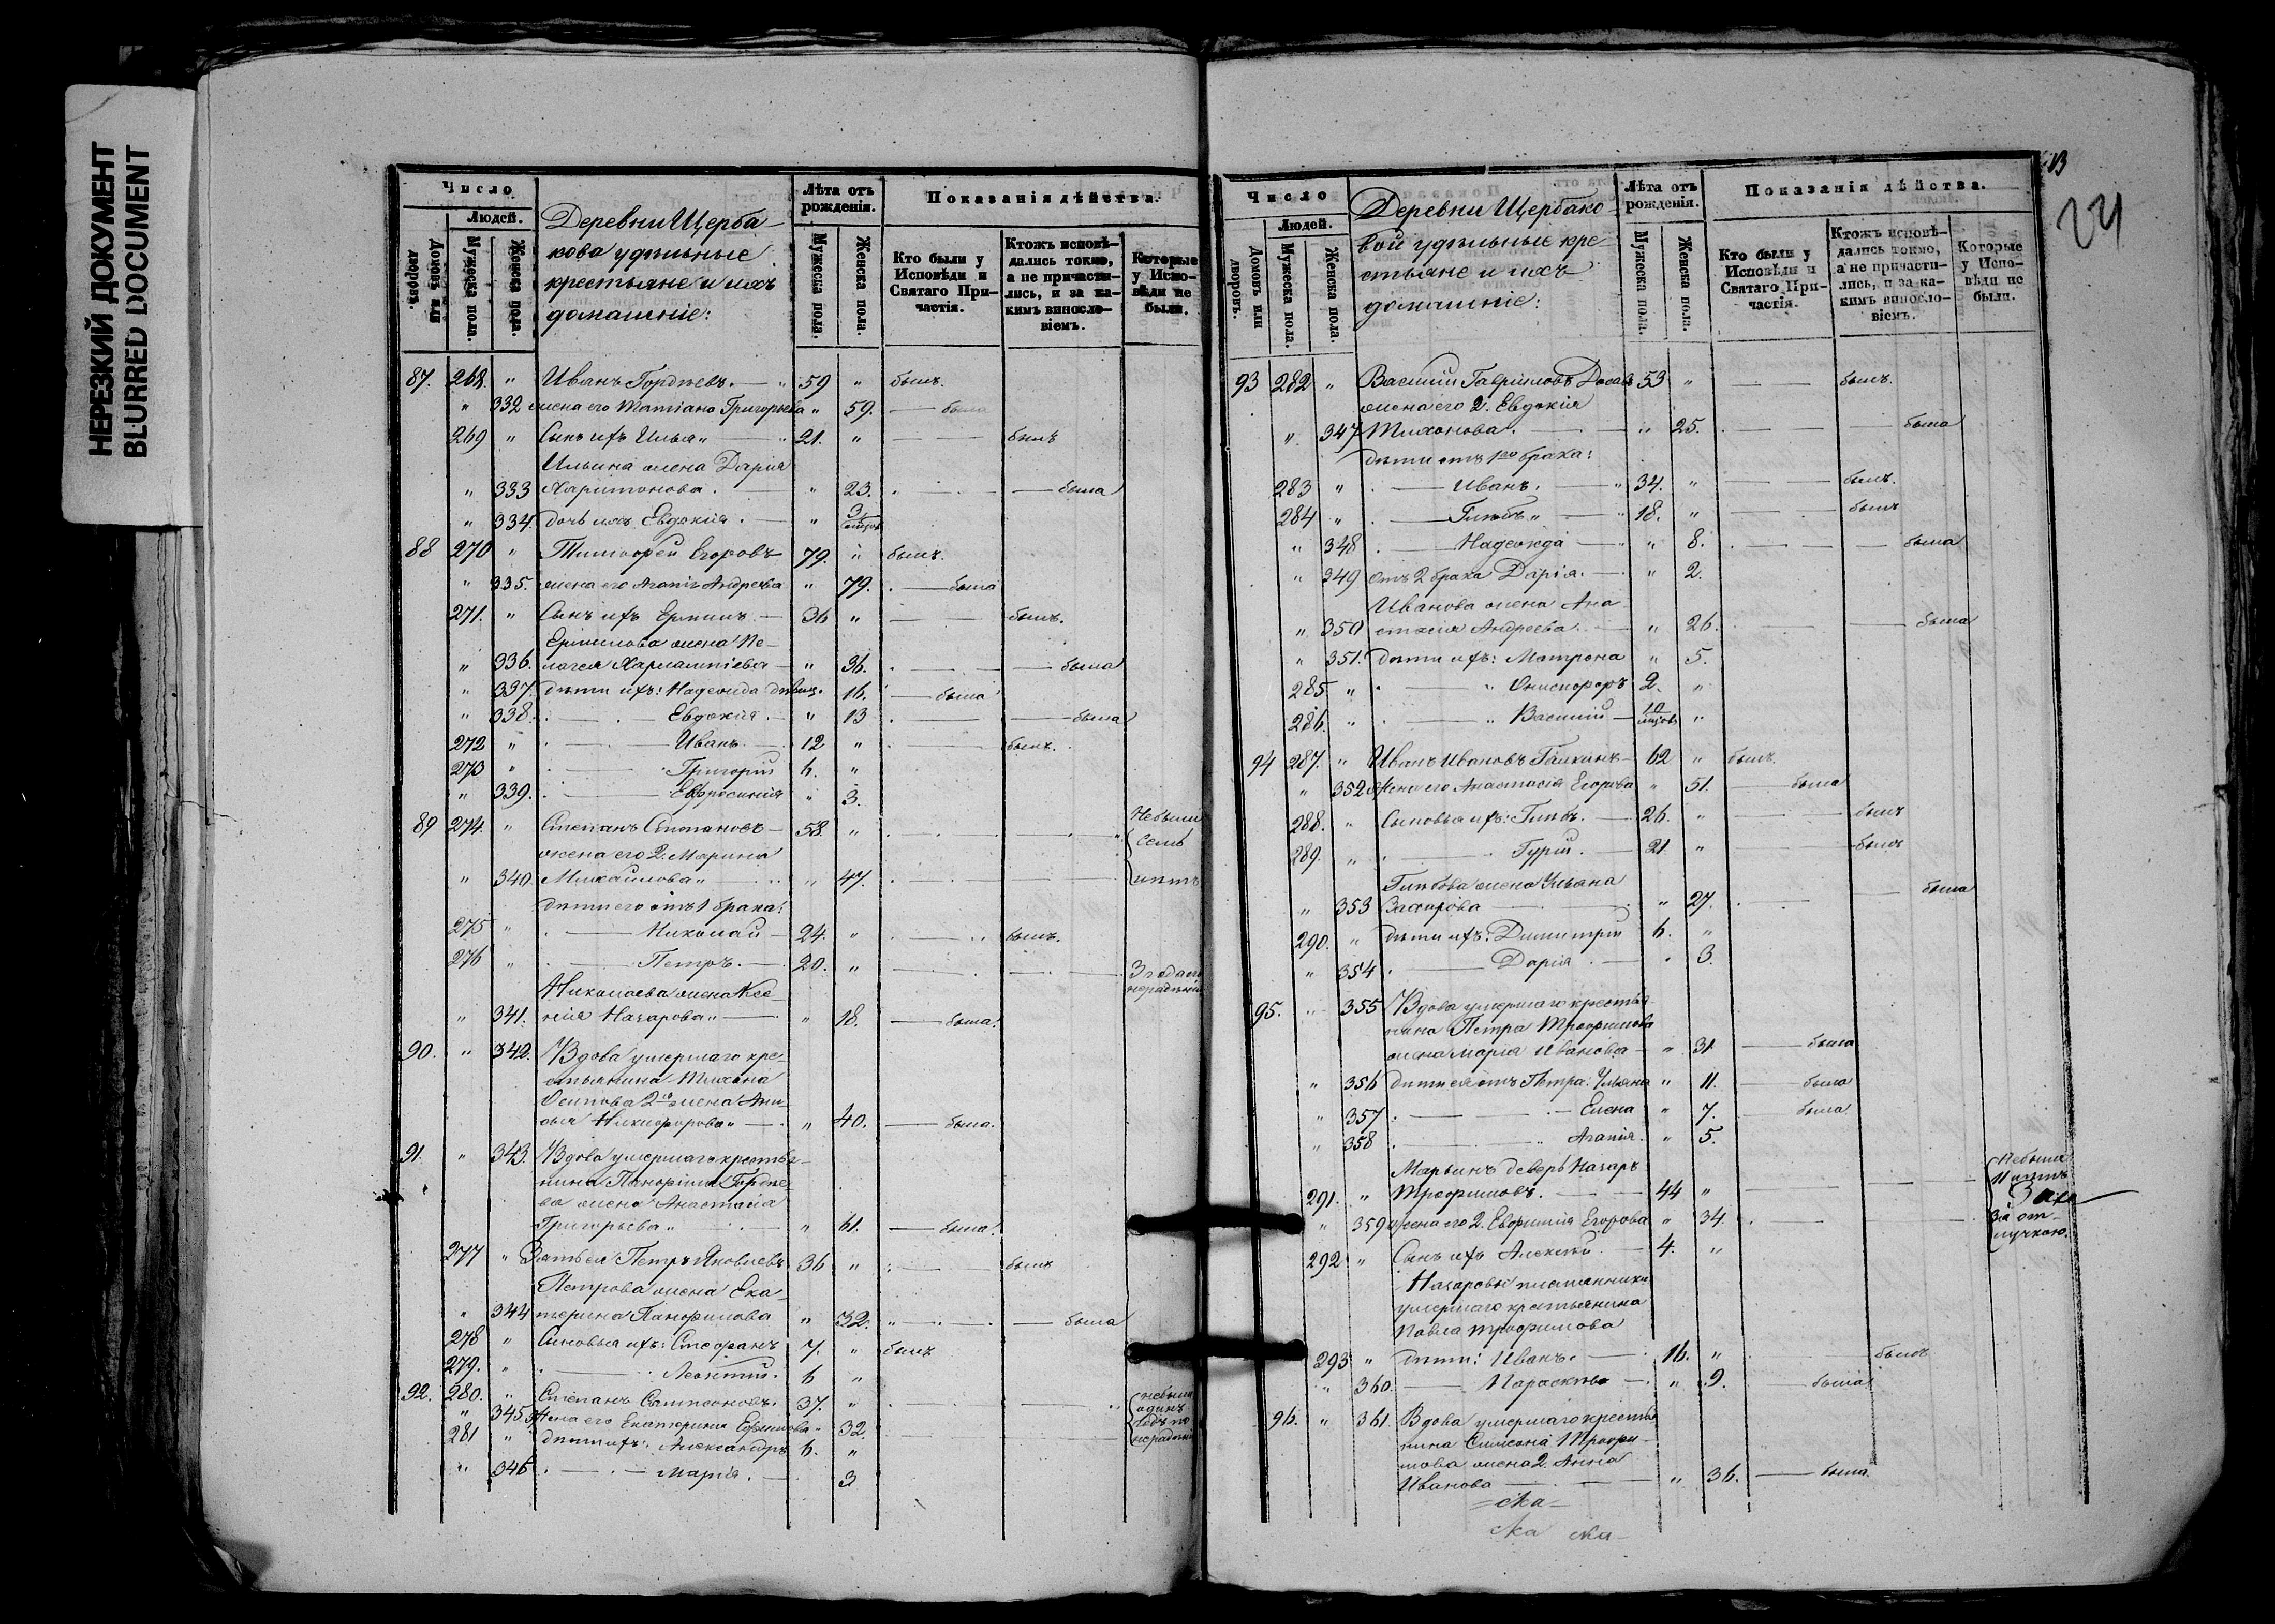 НЕРЕЗКИЙ ДОКУМЕНТ
BLURRED DOCUMENT
Число
Людей.
Домовъ или дворовъ.
Мужеска пола.
Женска пола.
Деревни Щерба-
кова удѣльные
крестьяне и ихъ
домашніе:
Лѣта отъ рожденія.
Мужеска пола.
Женска пола.
Показанія дѣйства.
Кто были у Исповѣди и Святаго Причастія.
Ктожъ исповѣдались токмо, а не причастились, и за какимъ винословіемъ.
Которые у Исповѣди не были.
87. 268. " Иванъ Гордѣевъ. — " 59 " былъ.
" 332 жена его Татіана Григорьева " 59. — была
269 " Сынъ ихъ Илья " — 21. " — — былъ
Ильина жена Дарія
" 333 Харитонова. " 23. — была
" 334. дочь ихъ Евдокія. — " 3 мѣсяцов
88 270 " Тимофей Егоровъ 79. " былъ.
" 335. жена его Агапія Андреева " 79. — была
271. " Сынъ ихъ Ермилъ. — 36 " — былъ.
Ермилова жена Пе-
" 336. лагея Харлампіева — " 36. — была
" 337. дѣти ихъ: Надежда дѣвица. 16. — была
" 338. — Евдокія. — " 13 — была
272 " — Иванъ. 12 " — былъ.
273 " — Григорій 6. "
" 339. — Евфросинія " 3.
89 274. " Степанъ Степановъ — 58. " Небыли
жена его 2. Марина семь
" 340. Михайлова " — " 47. лѣтъ
дѣти его отъ 1 брака:
275 " — Николай — 24. " — былъ.
276 " — Петръ. — 20. " — 3 года по нерадѣнію
Николаева жена Ксе-
" 341. нія Назарова " — " 18. — была.
90. " 342. Вдова умершаго кре-
стьянина Тихона
Осипова 2я жена Ани-
сья Никифорова " — " 40. — была.
91. " 343. Вдова умершаго крестья-
нина Панфила Гордѣе-
ва жена Анастасія
Григорьева " — " 61. — была.
277 " Зять ея Петръ Яковлевъ 36 " — былъ
Петрова жена Ека-
" 344 терина Панфилова " 32. — была
278 " Сыновья ихъ: Стефанъ 7. " былъ
279. " — Леонтій. 6 "
92. 280. " Степанъ Сампсоновъ. 37. " небыли
" 345 Жена его Екатерина Ефимова " 32. одинъ годъ по
281 " дѣти ихъ: Александръ 6. " нерадѣнію
" 346 — Марія. — 3
13
24
Число
Людей.
Домовъ или дворовъ.
Мужеска пола.
Женска пола.
Деревни Щербако-
вой удѣльные кре-
стьяне и ихъ
домашніе:
Лѣта отъ рожденія.
Мужеска пола.
Женска пола.
Показанія дѣйства.
Кто были у Исповѣди и Святаго Причастія.
Ктожъ исповѣдались токмо, а не причастились, и за какимъ винословіемъ.
Которые у Исповѣди не были.
93 282 " Василій Гавриловъ 53 " — былъ.
жена его 2. Евдокія
" 347 Тихонова. — " 25. — была
дѣти отъ 1го брака:
283 " — Иванъ. — " 34. " — былъ.
284 " — Глѣбъ " — 18. " — былъ
" 348 — Надежда — " 8. — была
" 349 отъ 2 брака Дарія. — " 2.
Иванова жена Ана-
" 350 стасія Андреева. — " 26. — была
" 351. дѣти ихъ: Матрона " 5.
285 " — " Онисифоръ 2. "
286. " — " Василій — 10 мѣсяцовъ "
94 287. " Иванъ Ивановъ Галкинъ — 62 " былъ.
" 352 Жена его Анастасія Егорова " 51. — была
288. " Сыновья ихъ: Глѣбъ. — 26. " — былъ
289. " — Гурій. — 21 " — былъ
Глѣбова жена Ульяна
" 353 Захарова — " 27. — была
290. " дѣти ихъ: Димитрій 6. "
" 354 — Дарія. — " 3.
95. " 355 Вдова умершаго крестья-
нина Петра Трофимова
жена Марія Иванова — " 31 — была
" 356 дѣти ея отъ Петра: Ульяна " 11. — была
" 357 — Елена " 7. — была
" 358 — Агапія. " 5.
Марьинъ деверь Назаръ небыли
291. " Трофимовъ. — 44 " лѣтъ
" 359 жена его 2. Евфимія Егорова " 34. за от-
292 " Сынъ ихъ Алексѣй. — 4. " лучкою.
Назаровы племянники
умершаго крестьянина
Павла Трофимова
293 " дѣти: Иванъ. — 16. " — былъ
" 360. — Параскева — " 9. — была
96. " 361. Вдова умершаго крестья-
нина Симеона Трофи-
мова жена 2. Анна
Иванова — " 36. — была.